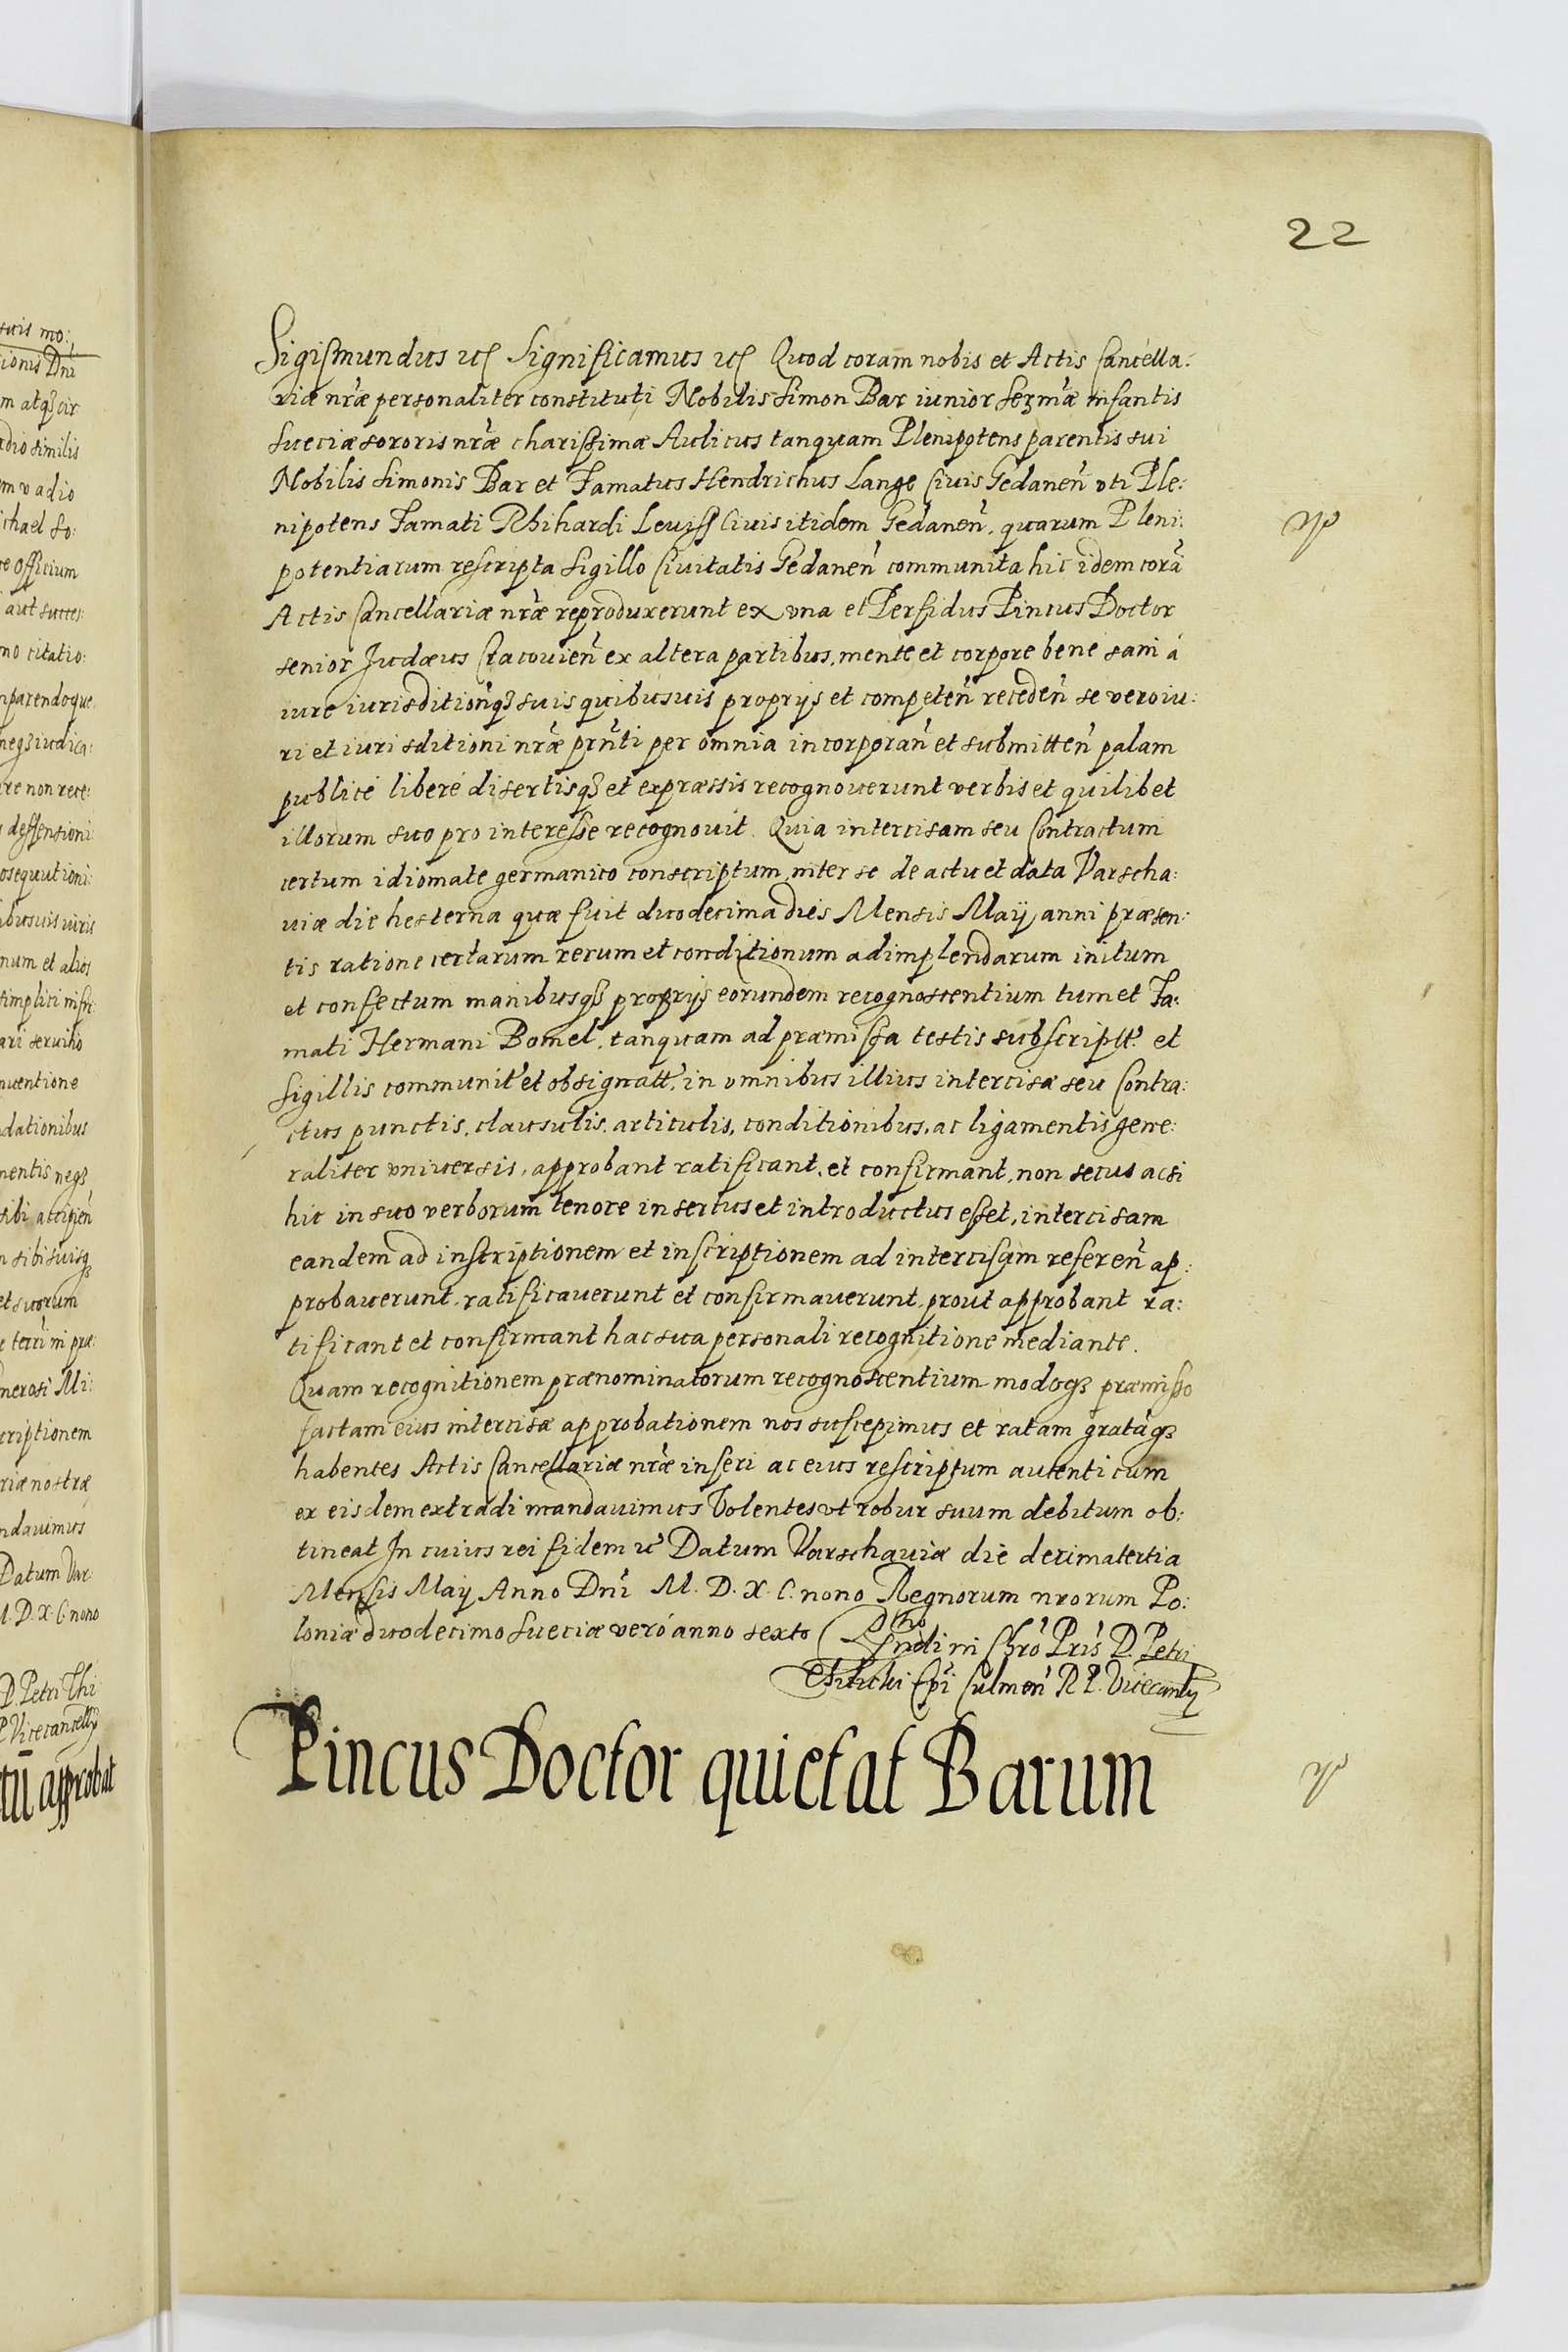 22
Sigismundus etc Significamus etc Quod coram nobis et Actis Cancella:
riæ nr̃æ personaliter constituti Nobilis Simon Bar iunior Serm̃æ infantis
Sueciæ sororis nr̃æ charissimæ Aulicus tanquam Plenipotens parentis sui
Nobilis Simonis Bar et Famatus Hendrichus Lange Ciuis Gedanen̄ vti Ple:
nipotens Famati Rhihardi Ciuis itidem Gedanen̄, quarum Pleni:
potentiarum rescripta Sigillo Ciuitatis Gedanen̄ communita hic idem corã
Actis Cancellariæ nr̃æ reproduxerunt ex vna et Perfidus Pincus Doctor
senior Judæus Cracouien̄ ex altera partibus, mente et corpore bene sani á
iure iurisdition̄qȝ suis quibusuis proprijs et competen̄ receden̄ se vero iu:
ri et iurisditioni nr̃æ prñti per omnia incorporan̄ et submitten̄ palam
publicé liberé disertisqȝ et expræssis recognouerunt verbis et quilibet
illorum suo pro interesse recognouit. Quia intercisam seu Contractum
certum idiomate germanico conscriptum inter se de actu et data Varscha:
uiæ die hesterna quæ fuit duodecima dies Mensis Maij anni præsen:
tis ratione certarum rerum et conditionum adimplendarum initum
et confectum manibusqȝ proprijs eorundem recognoscentium tum et Fa:
mati Hermani Bomel, tanquam ad præmissa testis subscriptt̃ et
Sigillis communit̃ et obsignatt̃, in omnibus illius intercisæ seu Contra:
ctus punctis, clausulis, articulis, conditionibus, ac ligamentis gene:
raliter vniuersis, approbant ratificant, et confirmant, non secus ac si
hic in suo verborum tenore insertus et introductus esset, intercisam
eandem ad inscriptionem et inscriptionem ad intercisam referen̄ ap:
probauerunt, ratificauerunt et confirmauerunt, prout approbant ra:
tificant et confirmant hac sua personali recognitione mediante.
Quam recognitionem prænominatorum recognoscentium modoqȝ præmisso
factam eius intercisæ approbationem nos suscepimus et ratam gratãqȝ
habentes Actis Cancellariæ nr̃æ inseri ac eius rescriptum autenticum
ex eisdem extradi mandauimus Volentes vt robur suum debitum ob:
tineat In cuius rei fidem etc̃ Datum Varschauiæ die decimatertia
Mensis Maij Anno Dn̄i M. D. X. C. nono Regnorum nrorum Po:
loniæ duodecimo Sueciæ veró anno sexto
Rñdi in Chrõ Pris̃ D. Petri
Tilicki Ep̃i Culmen̄ R P. Vicecanly
Pincus Doctor quietat Barum